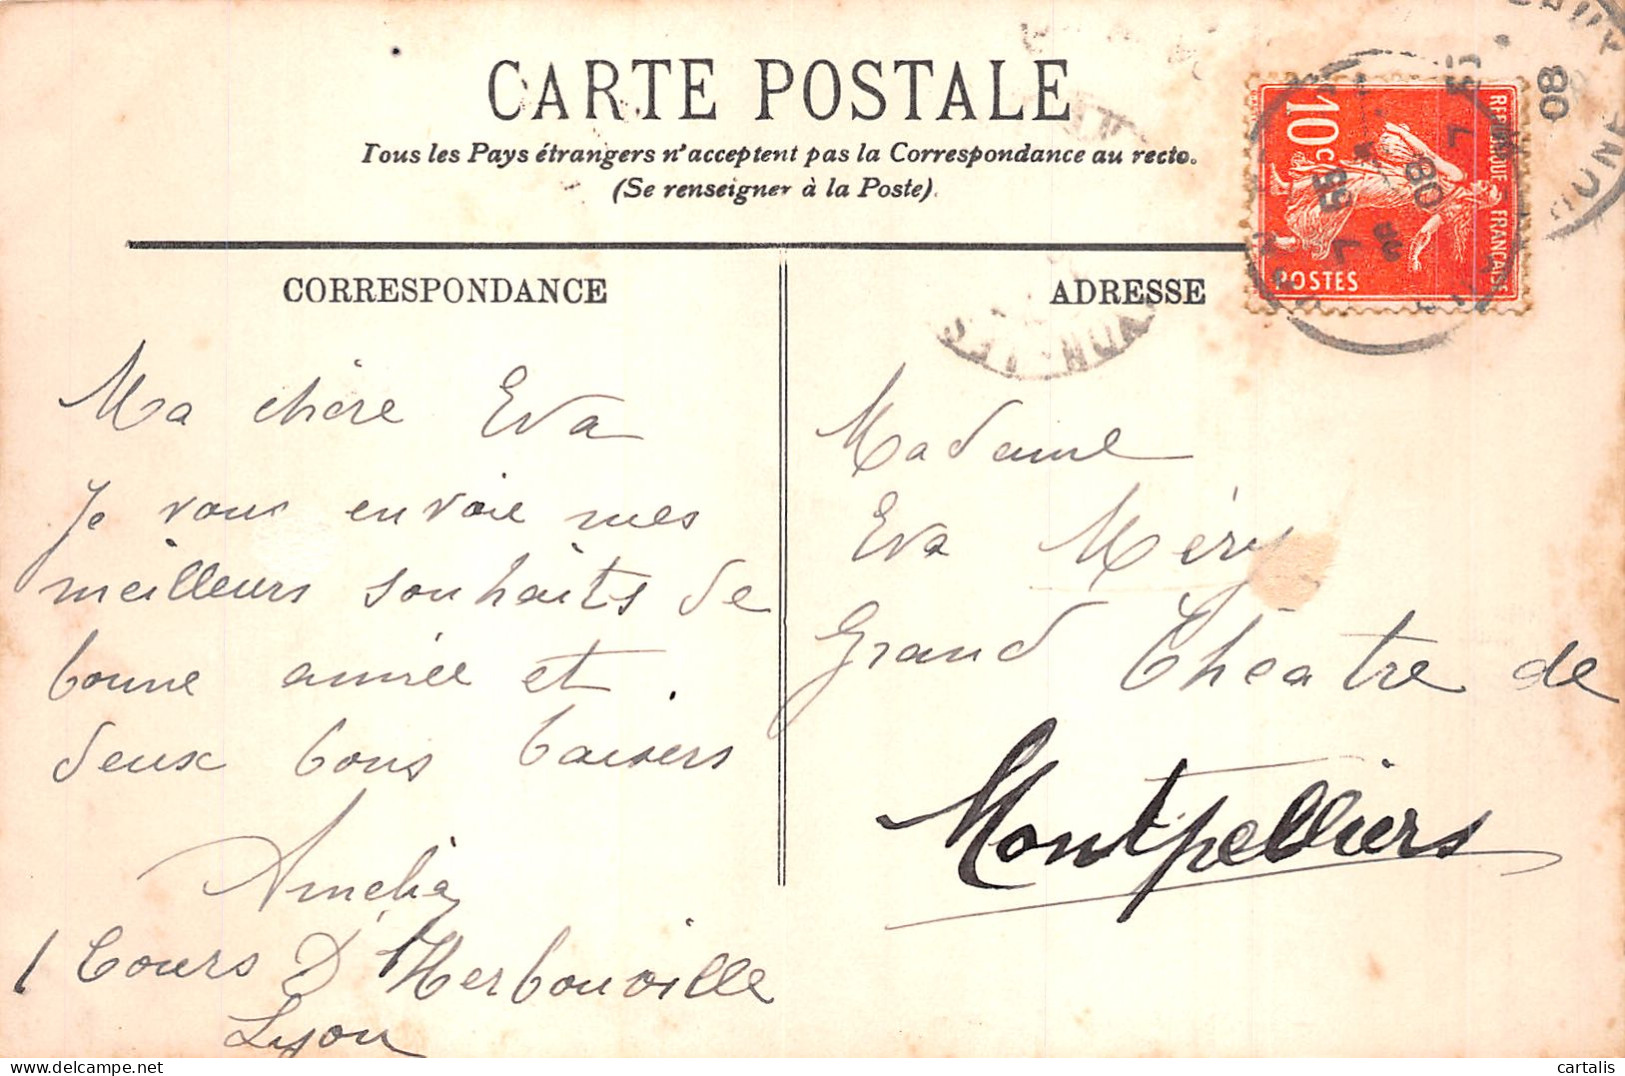 CARTE POSTALE
Tous les Pays étrangers n'acceptent pas la Correspondance au recto.
(Se renseigner à la Poste).
CORRESPONDANCE
Ma chère Eva
Je vous envoie mes
meilleurs souhaits de
bonne année et
deux bons baisers
Amélia
1 Cours D'Herbouville
Lyon
ADRESSE
Madame
Eva Méry
Grand Théatre de
Montpelliers
10c
REPUBLIQUE FRANCAISE
POSTES
08
cartalis